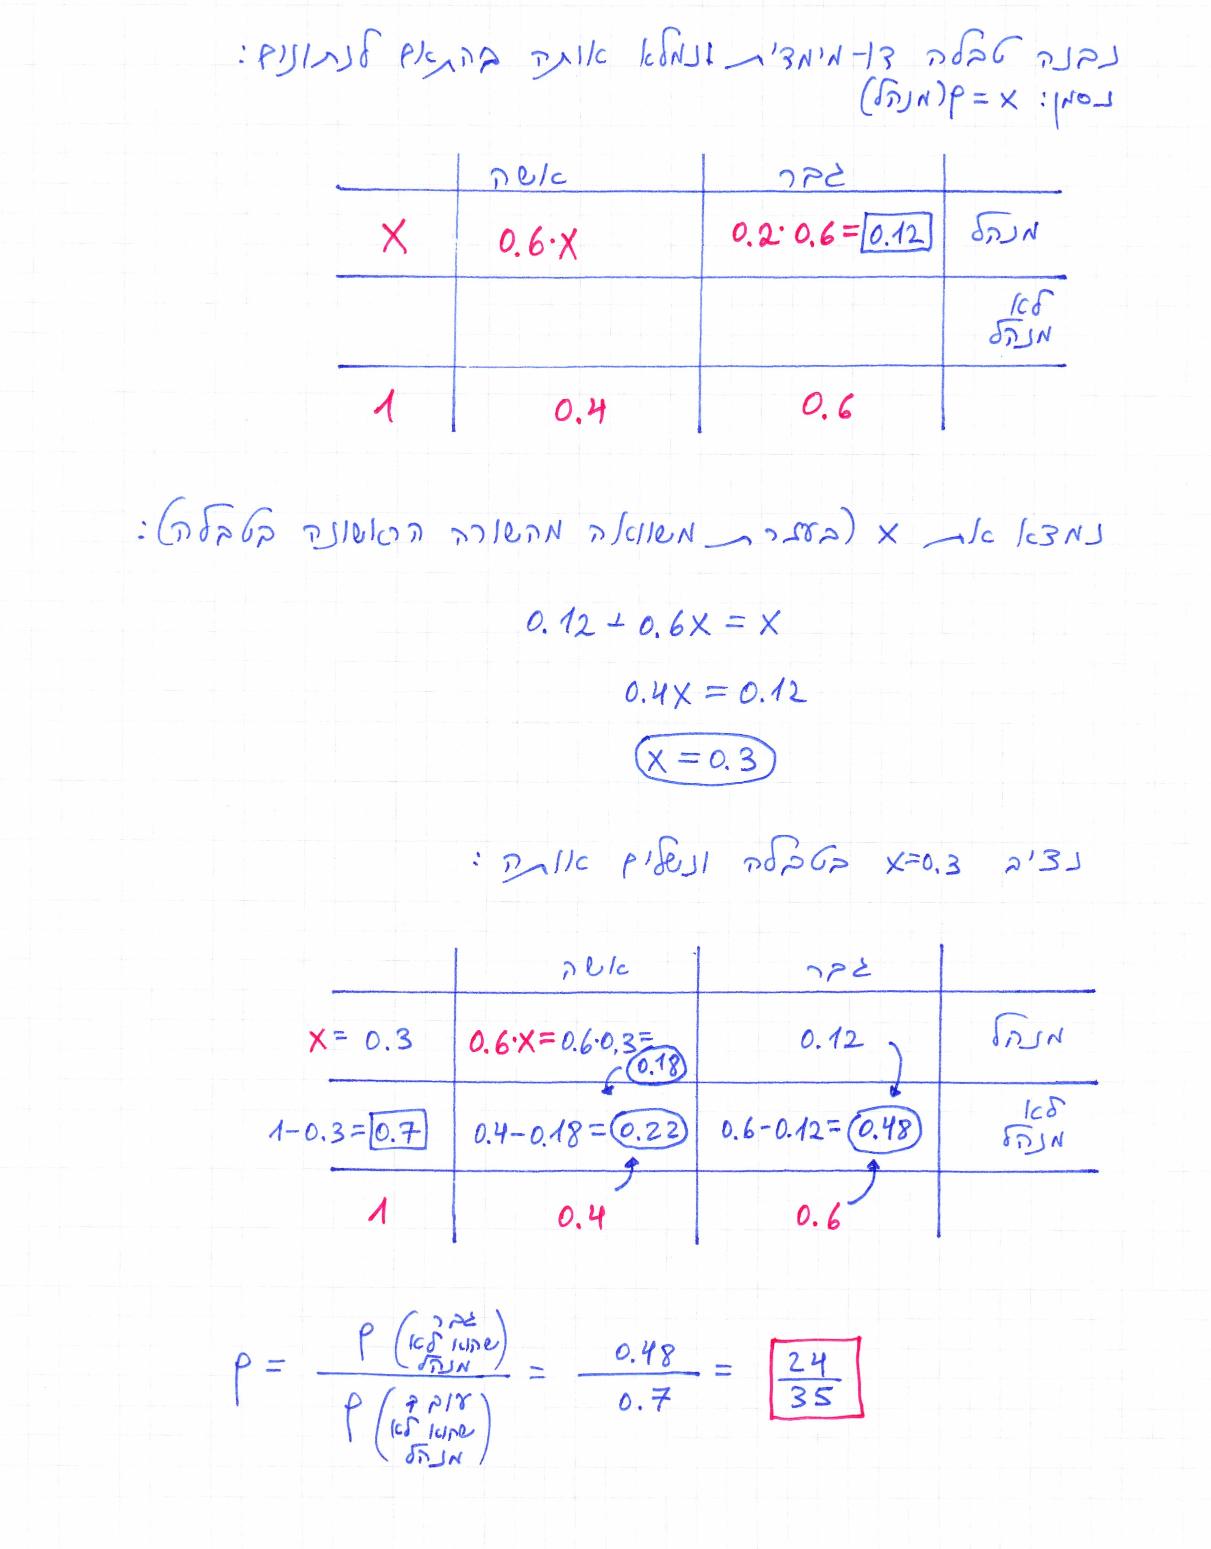 נבנה טבלה דו-מימדית ונמלא אותה בהתאם לנתונים:
נסמן: x = P(מנהל)
גבר אשה
מנהל 0.2·0.6=0.12 0.6·X X
לא
מנהל
0.6 0.4 1
נמצא את x (בעזרת משוואה מהשורה הראשונה בטבלה):
0.12 + 0.6X = X
0.4X = 0.12
X = 0.3
נציב x=0.3 בטבלה ונשלים אותה:
גבר אשה
מנהל 0.12 0.6·X=0.6·0.3= X= 0.3
0.18
לא
מנהל 0.6-0.12=0.48 0.4-0.18=0.22 1-0.3=0.7
0.6 0.4 1
P = P(גבר שהוא לא מנהל) / P(עובד שהוא לא מנהל) = 0.48 / 0.7 = 24 / 35